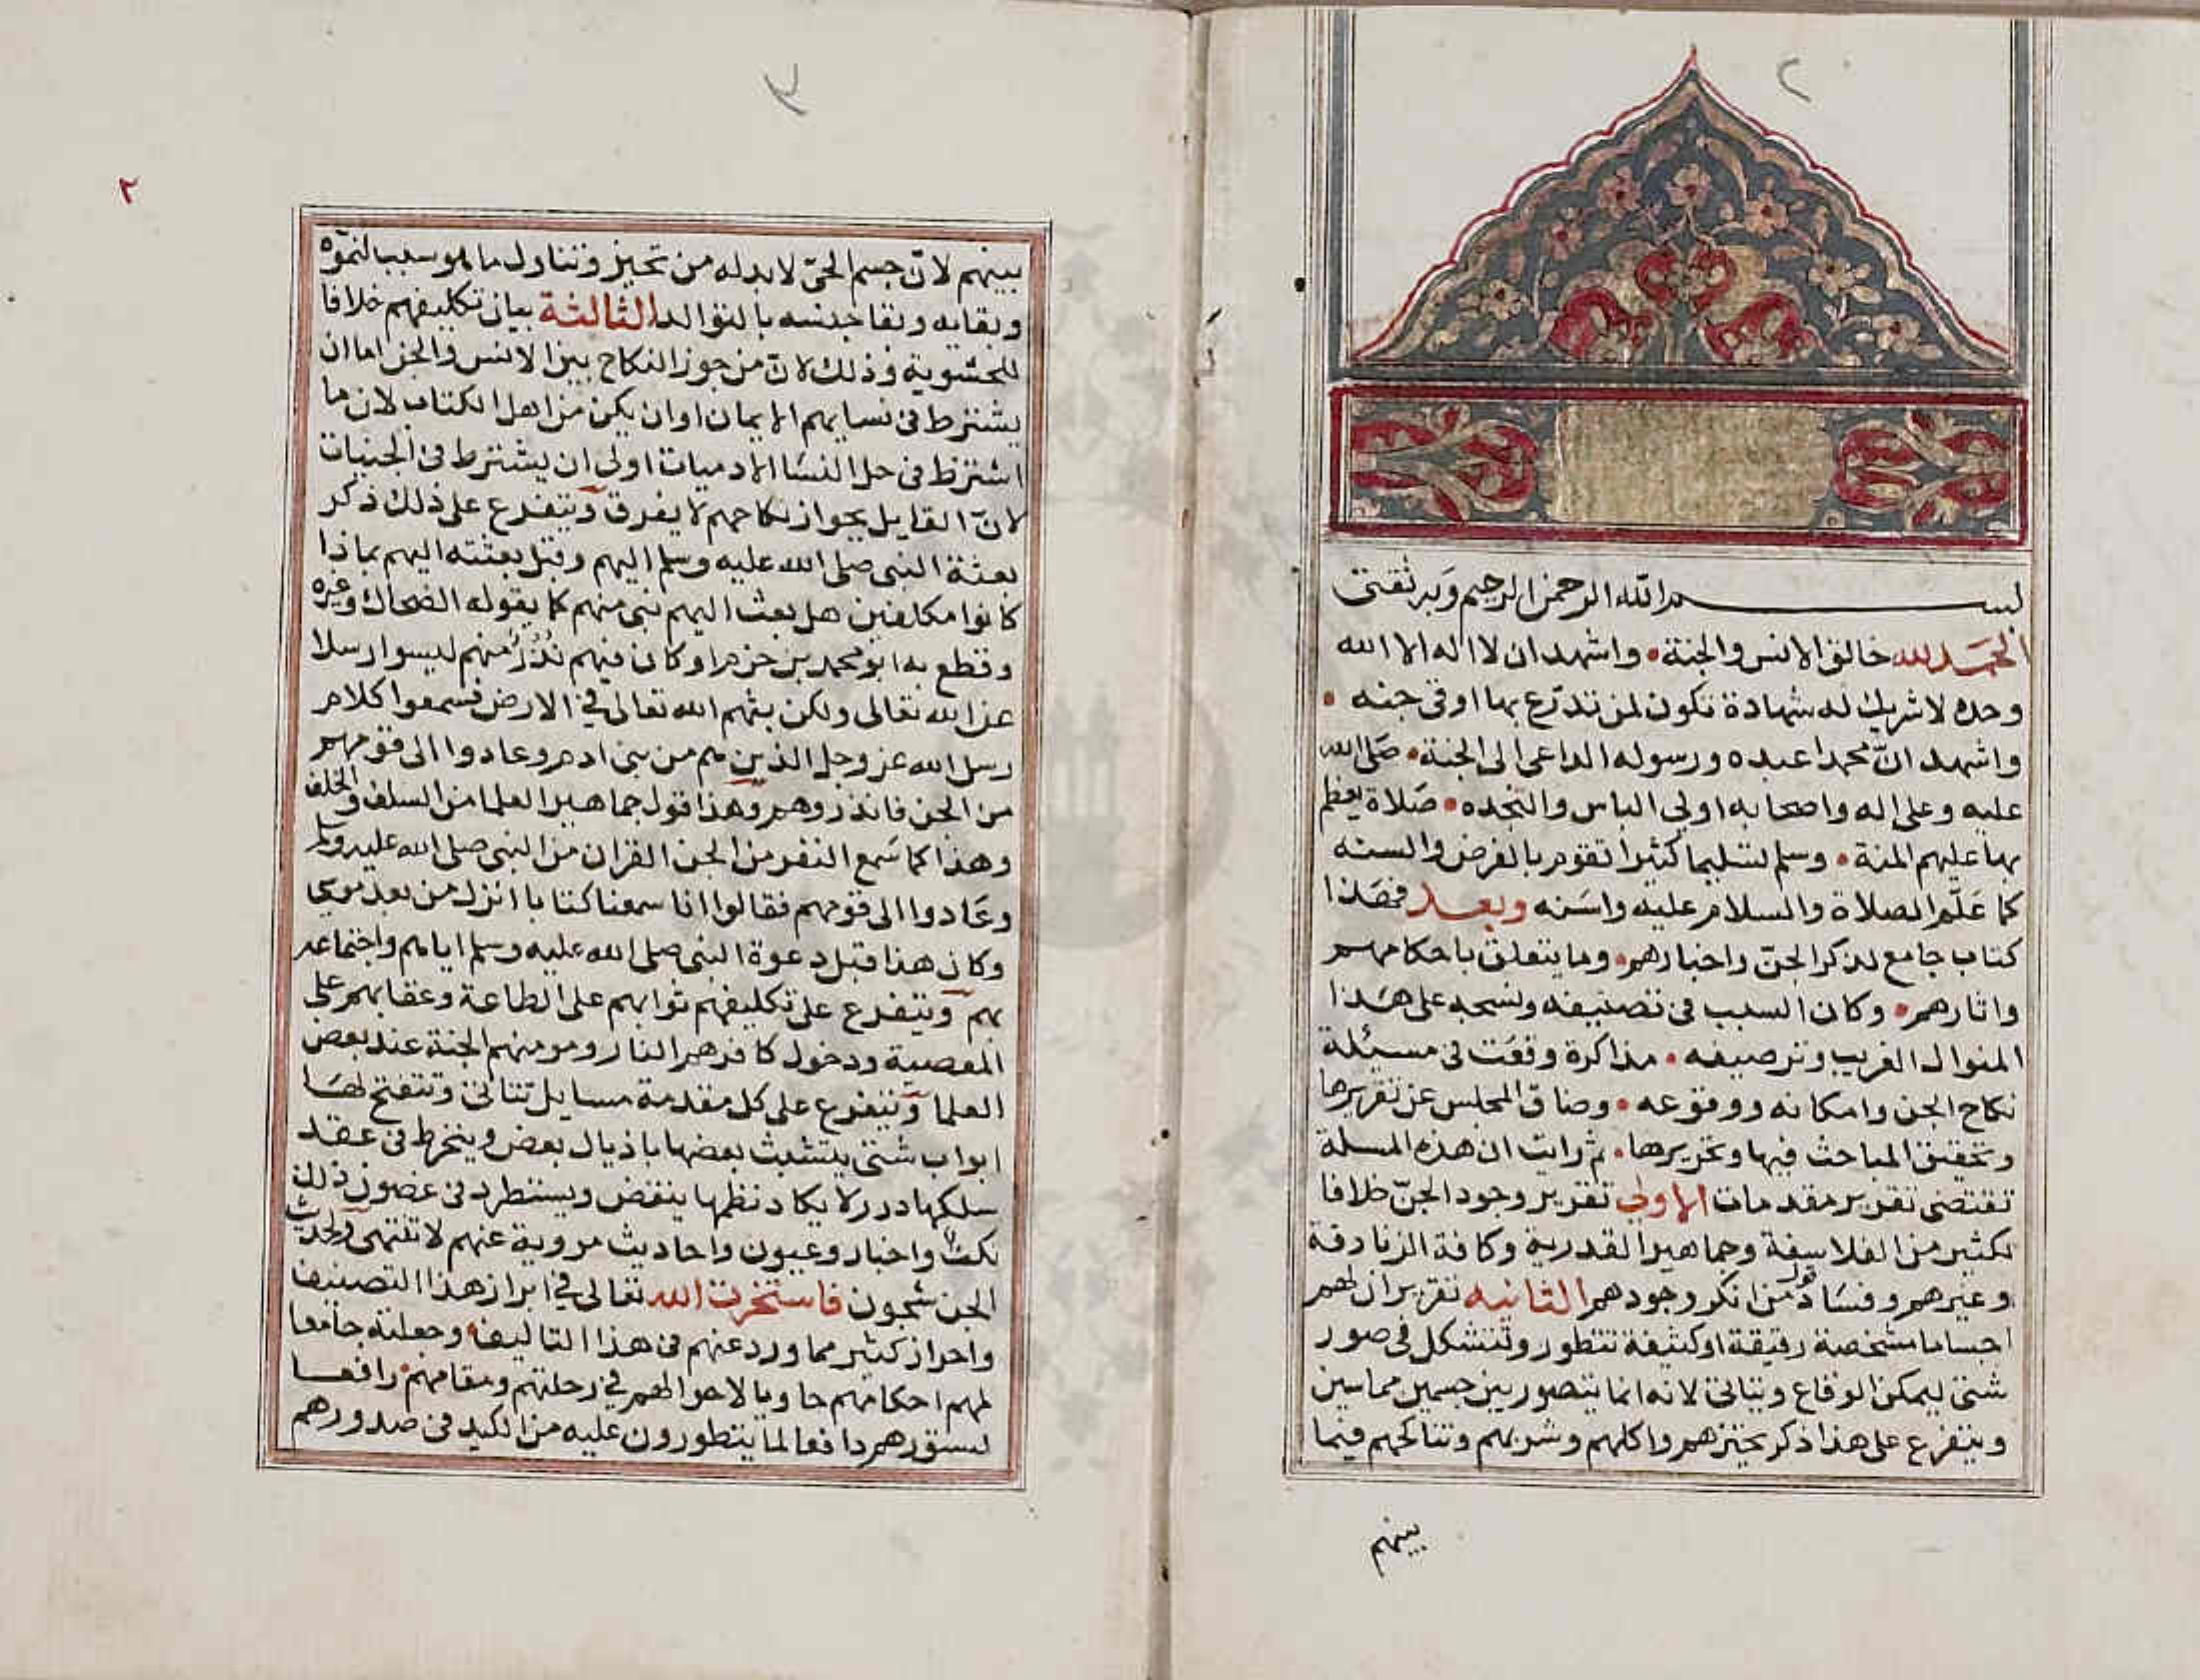 ٢
بســــم الله الرحمن الرحيم وبه ثقتي
الحمد لله خالق الانس والجنة • واشهد ان لا اله الا الله
وحده لا شريك له شهادة تكون لمن تدرع بها اوقى جنه •
واشهد انّ محمدا عبده ورسوله الداعى الى الجنة • صلى الله
عليه وعلى اله واصحابه اولى الباس والنجده • صلاة يعظم
بها عليهم المنة • وسلم تسليما كثيرا تقوم بالفرض والسنه
كما علّم الصلاة والسلام عليه واسنه وبعد فهذا
كتاب جامع لذكر الجنّ واخبارهم • وما يتعلق باحكامهم
واثارهم • وكان السبب فى تصنيفه ونسجه على هذا
المنوال الغريب وترصيفه • مذاكرة وقعت فى مسئلة
نكاح الجن وامكانه ووقوعه • وضاق المجلس عن تقريرها
وتحقيق المباحث فيها وتحريرها • ثم رايت ان هذه المسلة
تقتضى تقرير مقدمات الاولى تقرير وجود الجنّ خلافا
لكثير من الفلاسفة وجماهير القدرية وكافة الزنادقة
وغيرهم وفساد قول من انكر وجودهم الثانيه تقرير ان لهم
اجساما مشخصة رقيقة او كثيفة تتطور وتتشكل فى صور
شتى ليمكن الوقاع ويتاتى لانه انما يتصور بين جسمين مماسين
ويتفرع على هذا ذكر تحيزهم واكلهم وشربهم وتناكحهم فيما
بينهم
٢
بينهم لانّ جسم الحىّ لابد له من تحيز وتناول ما هو سبب لنموّه
وبقايه وبقا جنسه بالتوالد الثالثة بيان تكليفهم خلافا
للحشوية وذلك لانّ من جوز النكاح بين الانس والجن اما ان
يشترط فى نسايهم الايمان او ان يكن من اهل الكتاب لان ما
اشترط فى حل النسا الادميات اولى ان يشترط فى الجنيات
لانّ القايل بجواز نكاحهم لا يفرق ويتفرع على ذلك ذكر
بعثة النبى صلى الله عليه وسلم اليهم وقبل بعثته اليهم بماذا
كانوا مكلفين هل بعث اليهم نبى منهم كما يقوله الضحاك وغيره
وقطع به ابو محمد بن حزم او كان فيهم نُذُرٌ منهم ليسوا رسلا
عن الله تعالى ولكن بثهم الله تعالى فى الارض فسمعوا كلام
رسل الله عز وجل الذين هم من بنى ادم وعادوا الى قومهم
من الجن فانذروهم وهذا قول جماهير العلما من السلف والخلف
وهذا كما سمع النفر من الجن القران من النبى صلى الله عليه وسلم
وعادوا الى قومهم فقالوا انا سمعنا كتابا انزل من بعد موسى
وكان هذا قبل دعوة النبى صلى الله عليه وسلم اياهم واجتماعه
بهم ويتفرع على تكليفهم ثوابهم على الطاعة وعقابهم على
المعصية ودخول كافرهم النار ومومنهم الجنة عند بعض
العلما ويتفرع على كل مقدمة مسايل تتاتى وتنفتح لها
ابواب شتى يتشبث بعضها باذيال بعض وينخرط فى عقد
سلكها درر لا يكاد نظمها ينفض ويستطرد فى غضون ذلك
نكتٌ واخبار وعيون واحاديث مروية عنهم لا تنتهى والحديث
الجن شجون فاستخرت الله تعالى فى ابراز هذا التصنيف
واحراز كثير مما ورد عنهم فى هذا التاليف • وجعلته جامعا
لمهم احكامهم حاويا لاحوالهم فى رحلتهم ومقامهم • رافعا
لستورهم دافعا لما يتطورون عليه من الكيد فى صدورهم